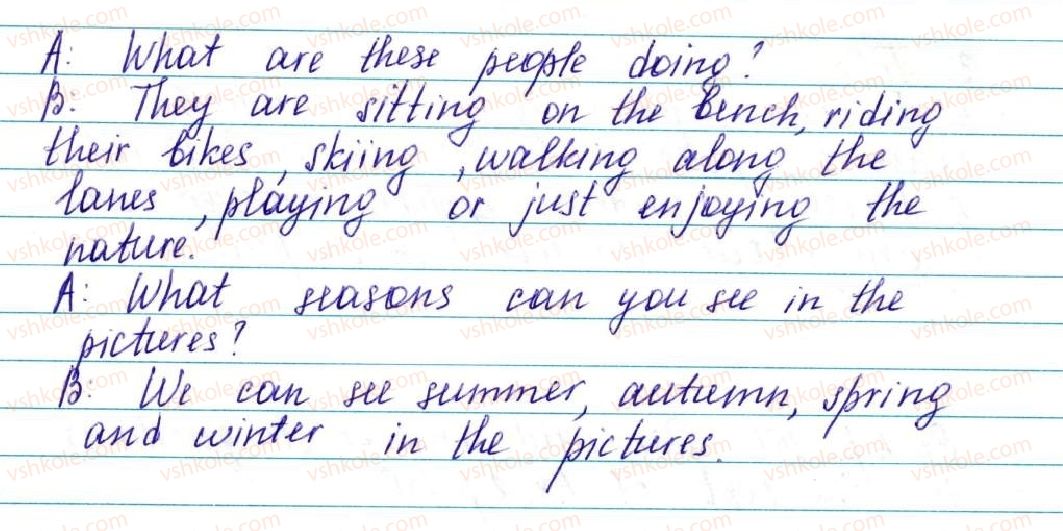 A: What are these people doing?
B: They are sitting on the bench, riding
their bikes, skiing, walking along the
lanes, playing or just enjoying the
nature.
A: What seasons can you see in the
pictures?
B: We can see summer, autumn, spring
and winter in the pictures.